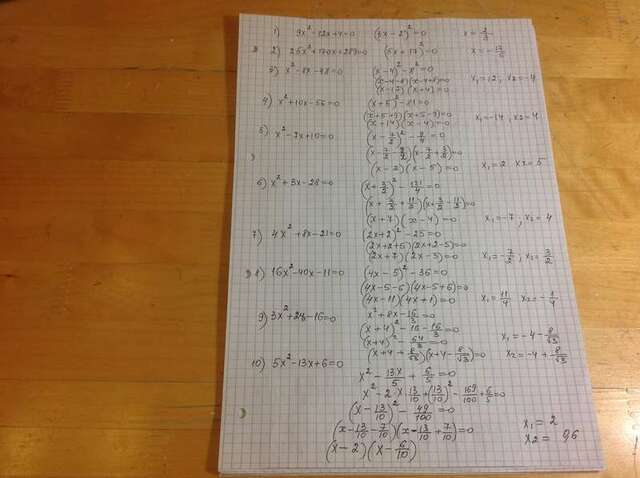 1) 9x²-12x+4=0 (3x-2)²=0 x=2/3
2) 25x²+170x+289=0 (5x+17)²=0 x=-17/5
3) x²-8x-48=0 (x-4)²-8²=0
(x-4-8)(x-4+8)=0
(x-12)(x+4)=0 x₁=12, x₂=-4
4) x²+10x-56=0 (x+5)²-81=0
(x+5+9)(x+5-9)=0
(x+14)(x-4)=0 x₁=-14, x₂=4
5) x²-7x+10=0 (x-7/2)²-9/4=0
(x-7/2-3/2)(x-7/2+3/2)=0
(x-2)(x-5)=0 x₁=2 x₂=5
6) x²+3x-28=0 (x+3/2)²-121/4=0
(x+3/2+11/2)(x+3/2-11/2)=0
(x+7)(x-4)=0 x₁=-7, x₂=4
7) 4x²+8x-21=0 (2x+2)²-25=0
(2x+2+5)(2x+2-5)=0
(2x+7)(2x-3)=0 x₁=-7/2; x₂=3/2
8) 16x²-40x-11=0 (4x-5)²-36=0
(4x-5-6)(4x-5+6)=0
(4x-11)(4x+1)=0 x₁=11/4 x₂=-1/4
9) 3x²+24-16=0 x²+8x-16/3=0
(x+4)²-16-16/3=0
(x+4)²-64/3=0
(x+4+8/√3)(x+4-8/√3)=0 x₁=-4-8/√3
x₂=-4+8/√3
10) 5x²-13x+6=0 x²-13x/5+6/5=0
x²-2x13/10+(13/10)²-169/100+6/5=0
(x-13/10)²-49/100=0
(x-13/10-7/10)(x-13/10+7/10)=0 x₁=2
(x-2)(x-6/10) x₂=0,6